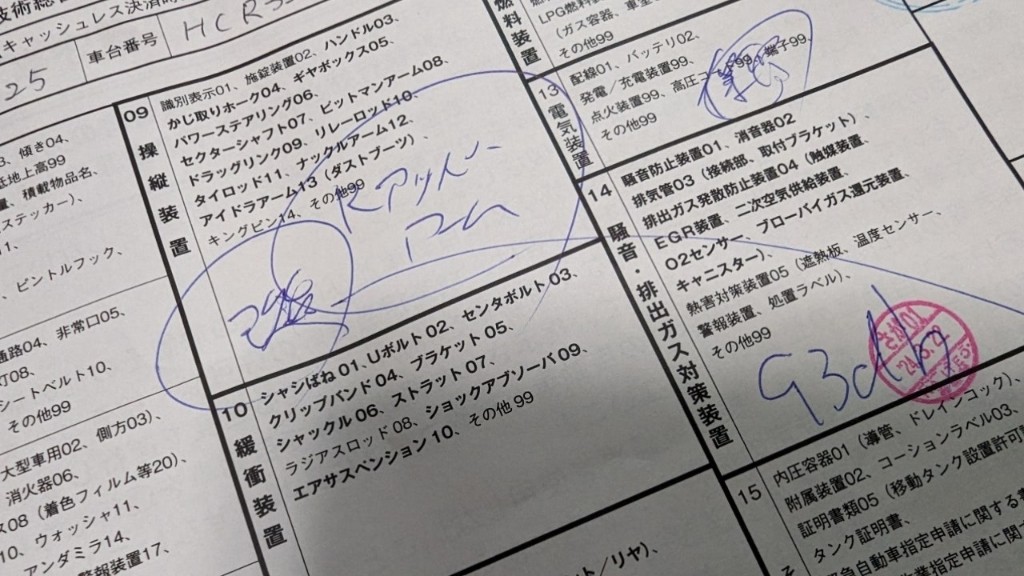 技術総
キャッシュレス決済
25
車台番号
HCR3
3、傾き04、
基地上高99
量、積載物品名、
ステッカー)、
、ピントルフック、
通路04、非常口05、
灯08、
シートベルト10、
その他99
大型車用02、側方03)、
消火器06、
ス08(着色フィルム等20)、
10、ウォッシャ11、
アンダミラ14、
警報装置17、
09
操縦装置
識別表示01、施錠装置02、ハンドル03、
かじ取りホーク04、ギヤボックス05、
パワーステアリング06、
セクターシャフト07、ピットマンアーム08、
ドラッグリンク09、リレーロッド10、
タイロッド11、ナックルアーム12
アイドラアーム13(ダストブーツ)
キングピン14、その他99
アッパー
アーム
10
緩衝装置
シャシばね01、Uボルト02、センタボルト03、
クリップバンド04、ブラケット05、
シャックル06、ストラット07、
ラジアスロッド08、ショックアブソーバ09、
エアサスペンション10、その他99
/リヤ)、
燃料装置
LPG燃料
(ガス容器、
その他99
13
電気装置
配線01、バッテリ02、
発電/充電装置99、
点火装置99、高圧
その他99
14
騒音・排出ガス対策装置
騒音防止装置01、消音器02
排気管03(接続部、取付ブラケット)、
排出ガス発散防止装置04(触媒装置、
EGR装置、二次空気供給装置、
O2センサー、ブローバイガス還元装置、
キャニスター)、
熱害対策装置05(遮熱板、温度センサー、
警報装置、処置ラベル)、
その他99
93db
15
内圧容器01(導管、ドレインコック)、
附属装置02、コーションラベル03、
証明書類05(移動タンク設置許可
タンク証明書、
急自動車指定申請に関する
業指定申請に関